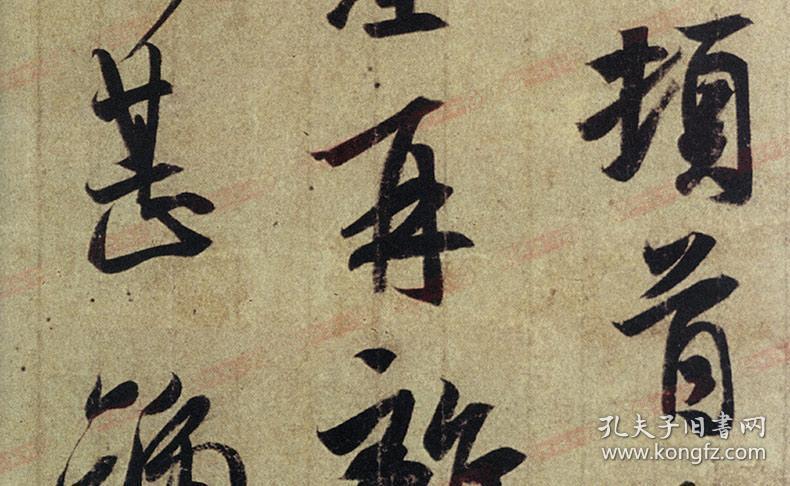 頓首
再離
甚號
孔夫子旧书网
www.kongfz.com